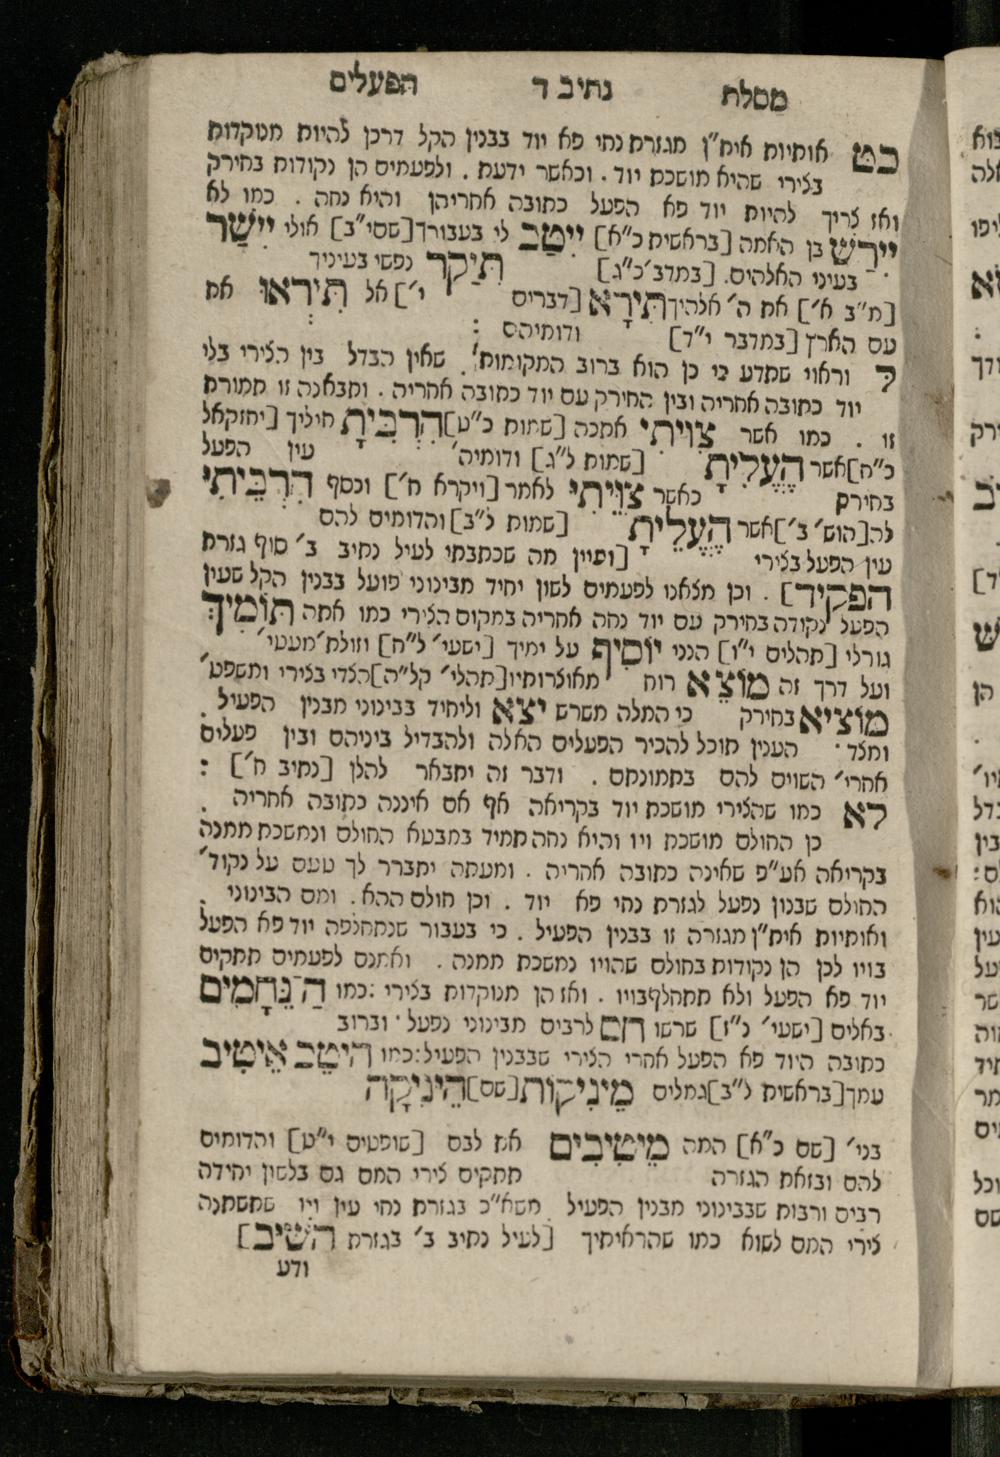 מסלת נתיב ד הפעלים
כט אותיות אית״ן מגזרת נחי פא יוד בבנין הקל דרכן להיות מנוקדות
בצירי שהיא מושכת יוד . וכאשר ידעת . ולפעמים הן נקודות בחירק
ואז צריך להיות יוד פא הפעל כתובה אחריהן והיא נחה . כמו לא
יִירַשׁ בן האמה [בראשית כ״א] יִיטַב לי בעבורך [שם י״ב] אולי יִישַׁר
בעיני האלהים. [במדב׳ כ״ג] תִּיקַר נפשי בעיניך
[מ״ב א׳] את ה׳ אלהיך תִּירָא [דברים י׳] אל תִּירְאוּ את
עם הארץ [במדבר י״ד] ודומיהם :
ל וראוי שתדע כי כן הוא ברוב המקומות׳ . שאין הבדל בין הצירי בלי
יוד כתובה אחריה ובין החירק עם יוד כתובה אחריה . ותבאנה זו תמורת
זו . כמו אשר צִוִּיתִי אתכה [שמות כ״ט] הִרְבִּיתָ חיליך [יחזקאל
כ״ח] אשר הֶעֱלִיתָ [שמות ל״ג] ודומיה׳ עין הפעל
בחירק כאשר צִוֵּיתִי לאמר [ויקרא ח׳] וכסף הִרְבֵּיתִי
לה [הוש׳ ב׳] אשר הֶעֱלֵיתָ [שמות ל״ב] והדומים להם
עין הפעל בצירי [ועיין מה שכתבתי לעיל נתיב ב׳ סוף גזרת
הפקיד] . וכן מצאנו לפעמים לשון יחיד מבינוני פועל בבנין הקל שעין
הפעל נקודה בחירק עם יוד נחה אחריה במקום הצירי כמו אתה תּוֹמִיךְ
גורלי [תהלים י״ו] הנני יוֹסִיף על ימיך [ישעי׳ ל״ח] וזולת׳ מעטי׳
ועל דרך זה מוֹצֵא רוח מאוצרותיו [תהלי׳ קל״ה] הצדי בצירי ומשפט׳
מוֹצִיא בחירק כי המלה משרש יצא וליחיד בבינוני מבנין הפעיל .
ומצד הענין תוכל להכיר הפעלים האלה ולהבדיל ביניהם ובין פעלים
אחרי׳ השוים להם בתמונתם . ודבר זה יתבאר להלן [נתיב ח׳] :
לא כמו שהצירי מושכת יוד בקריאה אף אם איננה כתובה אחריה .
כן החולם מושכת ויו והיא נחה תמיד במבטא החולם ונמשכת ממנה
בקריאה אע״פ שאינה כתובה אחריה . ומעתה יתברר לך טעם על נקוד׳
החולם שבנון נפעל לגזרת נחי פא יוד . וכן חולם ההא . ומם הבינוני .
ואותיות אית״ן מגזרה זו בבנין הפעיל . כי בעבור שנתחלפה יוד פא הפעל
בויו לכן הן נקודות בחולם שהויו נמשכת ממנה . ואמנם לפעמים תתקיים
יוד פא הפעל ולא תתחלף בויו . ואז הן מנוקדות בצירי : כמו הַנֵּחָמִים
באלים [ישעי׳ נ״ז] שרשו חם לרבים מבינוני נפעל וברוב
כתובה היוד פא הפעל אחרי הצירי שבבנין הפעיל : כמו הֵיטֵב אֵיטִיב
עמך [בראשית ל״ב] גמלים מֵינִיקוֹת [שם] הֵינִיקָה
בני׳ [שם כ״א] המה מֵיטִיבִים את לבם [שופטים י״ט] והדומים
להם ובזאת הגזרה תתקיים צירי המם גם בלשון יחידה
רבים ורבות שבבינוני מבנין הפעיל משא״כ בגזרת נחי עין ויו שתשתנה
צירי המם לשוא כמו שהראיתיך [לעיל נתיב ב׳ בגזרת השיב]
ודע